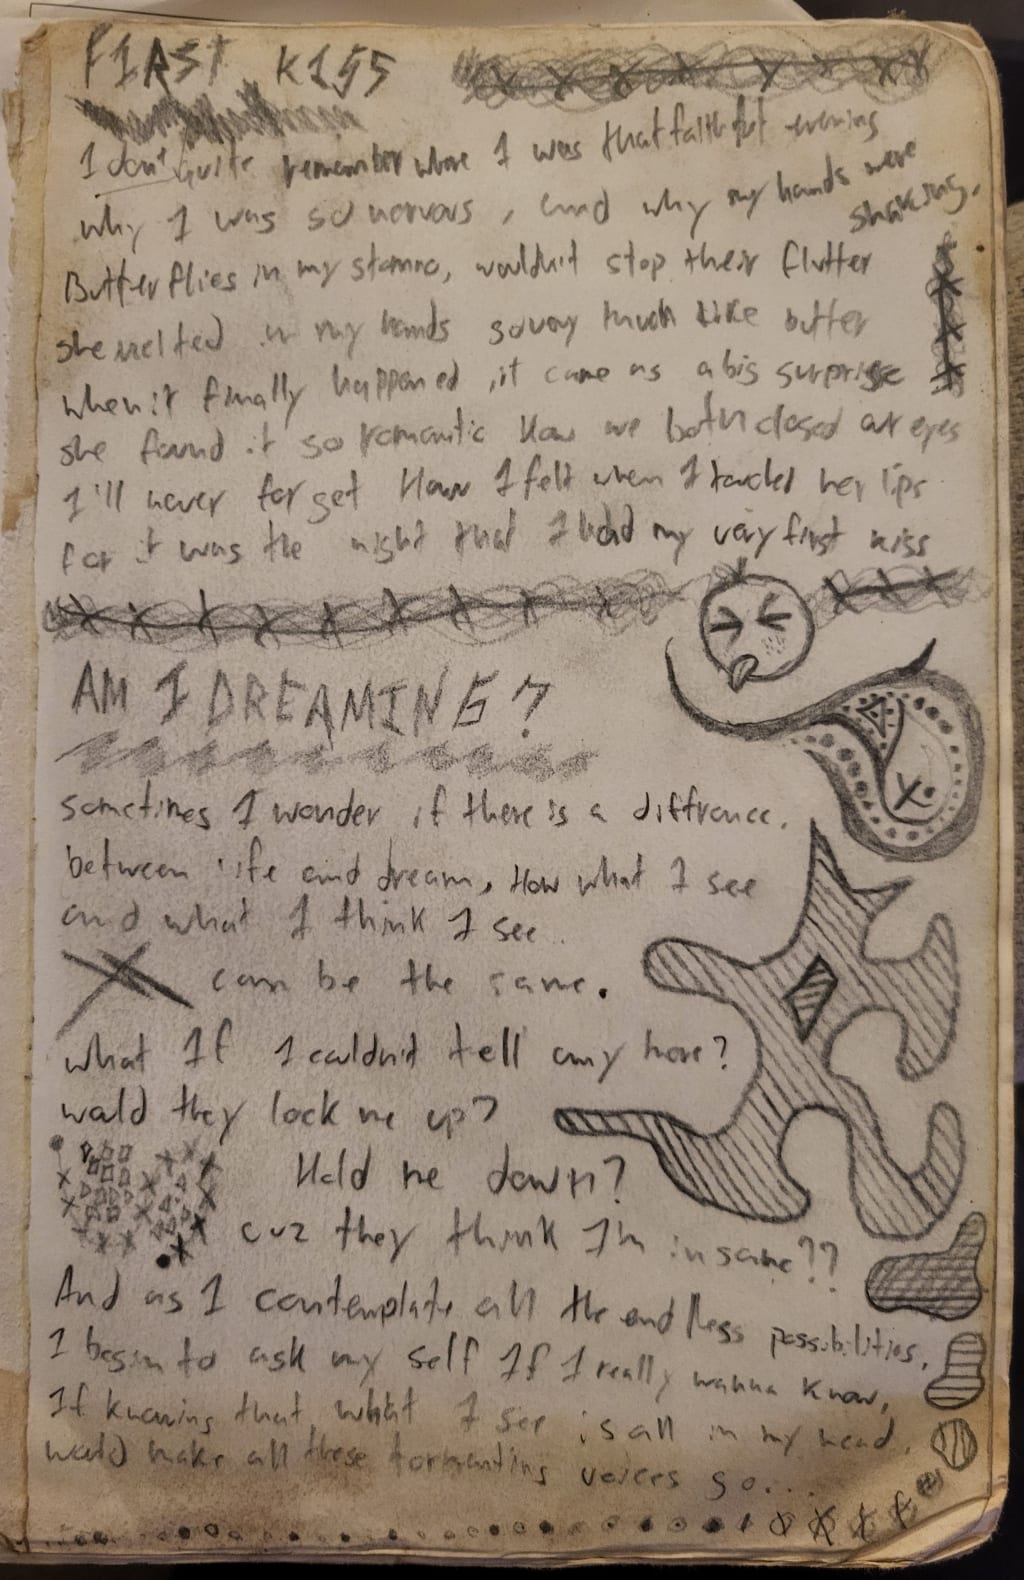 F1RST K1SS
I don't quite remember where I was that faithfut evening
why I was so nervous, and why my hands were
shaking.
Butterflies in my stomac, wouldn't stop their flutter
she melted in my hands so very much like butter
when it finally happened, it came as a big surprise
she found it so romantic How we both closed our eyes
I'll never forget How I felt when I touched her lips
for it was the night that I had my very first kiss
AM I DREAMING?
sometimes I wonder if there is a diffrance.
between life and dream, How what I see
and what I think I see..
can be the same.
what If I couldn't tell any more?
would they lock me up?
Hold me down?
cuz they think I'm insane??
And as I contemplate all the endless possibilities,
I begin to ask my self If I really wanna know,
If knowing that what I see is all in my head,
would make all these tormenting voices go...